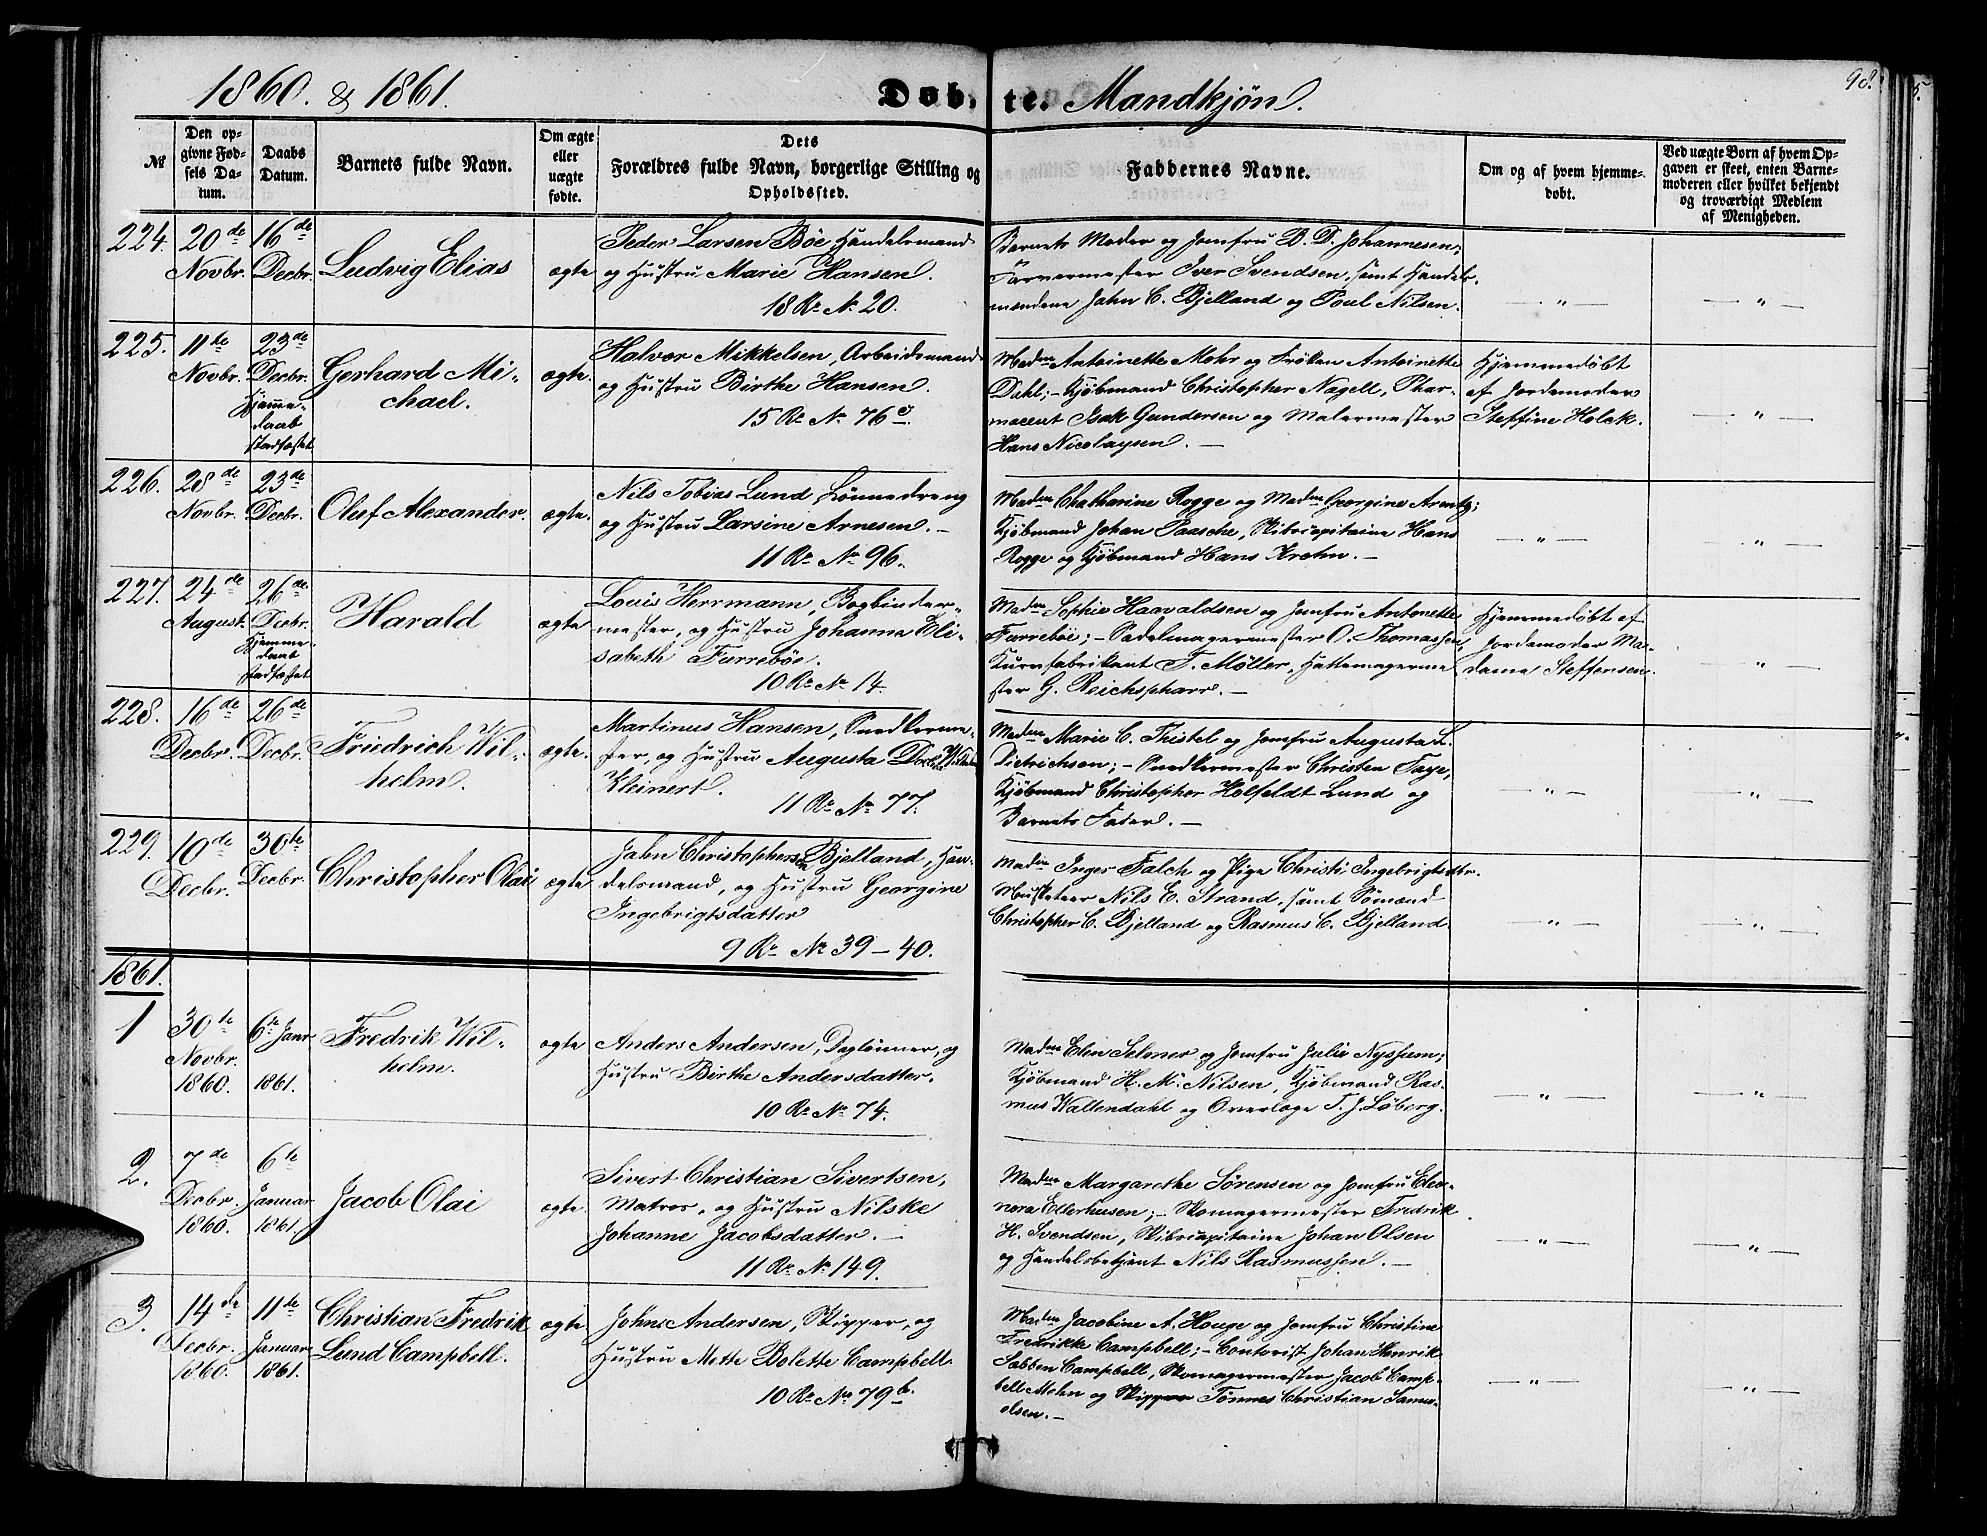 1860. & 1861.
Døb-te. Mandkjøn.
98.
5.
No
Den op-
givne Fød-
sels Da-
tum.
Daabs
Datum.
Barnets fulde Navn.
Om ægte
eller
uægte
fødte.
Dets
Forældres fulde Navn, borgerlige Stilling og
Opholdssted.
Faddernes Navne.
Om og af hvem hjemme-
døbt.
Ved uægte Børn af hvem Op-
gaven er skeet, enten Barne-
moderen eller hvilket bekjendt
og troværdigt Medlem
af Menigheden.
224. 20de Novbr. 16de Decbr. Ludvig Elias ægte
Peder Larsen Bøe Handelsmand
og Hustru Marie Hansen.
18 Re No 20.
Barnets Moder og Jomfru B. D. Johannesen;
Farvermester Iver Svendsen, samt Handels-
mændene John C. Bjelland og Poul Nilsen.
— " — — " —
225. 11de Novbr. 23de Decbr.
Hjemme-
daab
stadfæstet
Gerhard Mi-
chael.
ægte.
Halvor Mikkelsen, Arbeidsmand
og Hustru Birthe Hansen.
15 Re No 76 c.
Madme Antoinette Mohr og Frøken Antoinette
Dahl; - Kjøbmand Christopher Nagell, Phar-
maceut Isak Gundersen og Malermester
Hans Nicolaysen. —
Hjemmedøbt
af Jordemoder
Steffine Holck.
— " —
226. 28de Novbr. 23de Decbr. Oluf Alexander. ægte.
Nils Tobias Lund Lønnedreng
og Hustru Larsine Arnesen. —
11 Re No 96.
Madme Chatharine Rogge og Madme Georgine Arentz;
Kjøbmand Johan Paasche, Skibscapitaine Hans
Rogge og Kjøbmand Hans Krohn. —
— " — — " —
227. 24de August. 26de Decbr.
Hjemme-
daab
stadfæstet
Harald ægte
Louis Herrmann, Bogbinder-
mester, og Hustru Johanna Eli-
sabeth Furrebøe.
10 Re No 14.
Madme Sophie Haavaldsen og Jomfru Antonette
Furrebøe; - Sadelmagermester O. Thomassen,
Kurvfabrikant F. Møller, Hattemagerme
ster G. Reichspharr. —
Hjemmedøbt af
Jordemoder Ma-
dame Steffensen.
— " —
228. 16de Decbr. 26de Decbr. Friedrich Wil-
helm.
ægte.
Martinus Hansen, Snedkerme-
ster, og Hustru Augusta
Kleinert.
11 Re No 77.
Madme Marie C. Thistel og Jomfru Augusta L.
Dietrichsen; - Snedkermester Christen Faye,
Kjøbmand Christopher Holfeldt Lund og
Barnets Fader. —
— " — — " —
229. 10de Decbr. 30te Decbr. Christopher Olai ægte
John Christophersen Bjelland, Han-
delsmand, og Hustru Georgine
Ingebrigtsdatter
9 Re No 39-40.
Madme Inger Falch og Pige Christi Ingebrigtsdtr.
Musketeer Nils E. Strand, samt Sømænd
Christopher C. Bjelland og Rasmus C. Bjelland.
— " — — " —
1861.
1 30te Novbr. 1860. 6te Janr. 1861. Fredrik Wil-
helm.
ægte
Anders Andersen, Dagløнner, og
Hustru Birthe Andersdatter.
10 Re No 74.
Madme Elen Selmer og Jomfru Julie Nyshum;
Kjøbmand H. M. Nilsen, Kjøbmand Ras-
mus Waltendahl og Overlæge T. J. Løberg.
— " — — " —
2. 7de Decbr. 1860. 6te Januar 1861. Jacob Olai ægte.
Sivert Christian Sivertsen,
Matros, og Hustru Nilske
Johanne Jacobsdatter. —
11 Re No 149.
Madme Margarethe Sørensen og Jomfru Eleo-
nora Ellerhusen; - Skomagermester Fredrik
H. Svendsen, Skibscapitaine Johan Olsen
og Handelsbetjent Nils Rasmussen. —
— " — — " —
3. 14de Decbr. 1860. 11de Januar 1861. Christian Fredrik
Lund Campbell.
ægte
Johns Andersen, Skipper, og
Hustru Mette Bolette Campbell.
10 Re No 79 b.
Madme Jacobine A. Houge og Jomfru Christine
Fredrikke Campbell; - Contorist Johan Henrik
Sabben Campbell, Skomagermester Jacob Camp-
bell Mohn og Skipper Tønnes Christian Samu-
elsen. —
— " — — " —